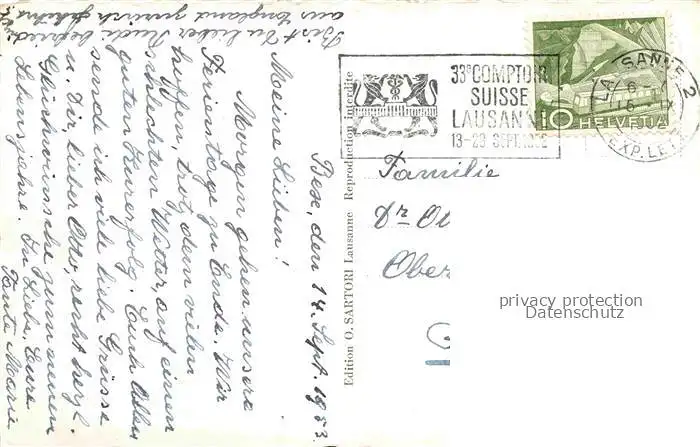 Bex, den 14. Sept. 1953.
Meine Lieben!
Morgen gehen unsere
Ferientage zu Ende. Wir
hoffen, trotz dem vielen
schlechten Wetter, auf einen
guten Kurerfolg. Euch Allen
sende ich viele liebe Grüsse
u. Dir, lieber Otto, recht herzl.
Glückwünsche zum neuen
Lebensjahre. In Liebe, Eure
Tante Marie.
Bist Du lieber
aus England zurück
Edition O. SARTORI Lausanne Reproduction interdite
33e COMPTOIR
SUISSE
LAUSANNE
13-28 SEPTEMBRE
LAUSANNE 2
EXP. LET
10 HELVETIA
Familie
Dr Ot
Ober
privacy protection
Datenschutz